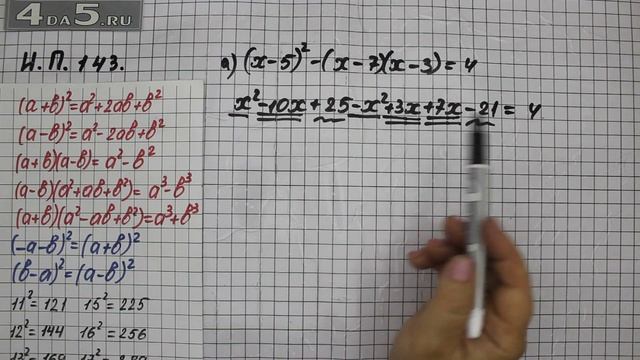 4DA5.RU
Н.П. 143.
(a+b)²=a²+2ab+b²
(a-b)²=a²-2ab+b²
(a+b)(a-b)=a²-b²
(a-b)(a²+ab+b²)=a³-b³
(a+b)(a²-ab+b²)=a³+b³
(-a-b)²=(a+b)²
(b-a)²=(a-b)²
11²=121 15²=225
12²=144 16²=256
а) (x-5)²-(x-7)(x-3)=4
x²-10x+25-x²+3x+7x-21=4